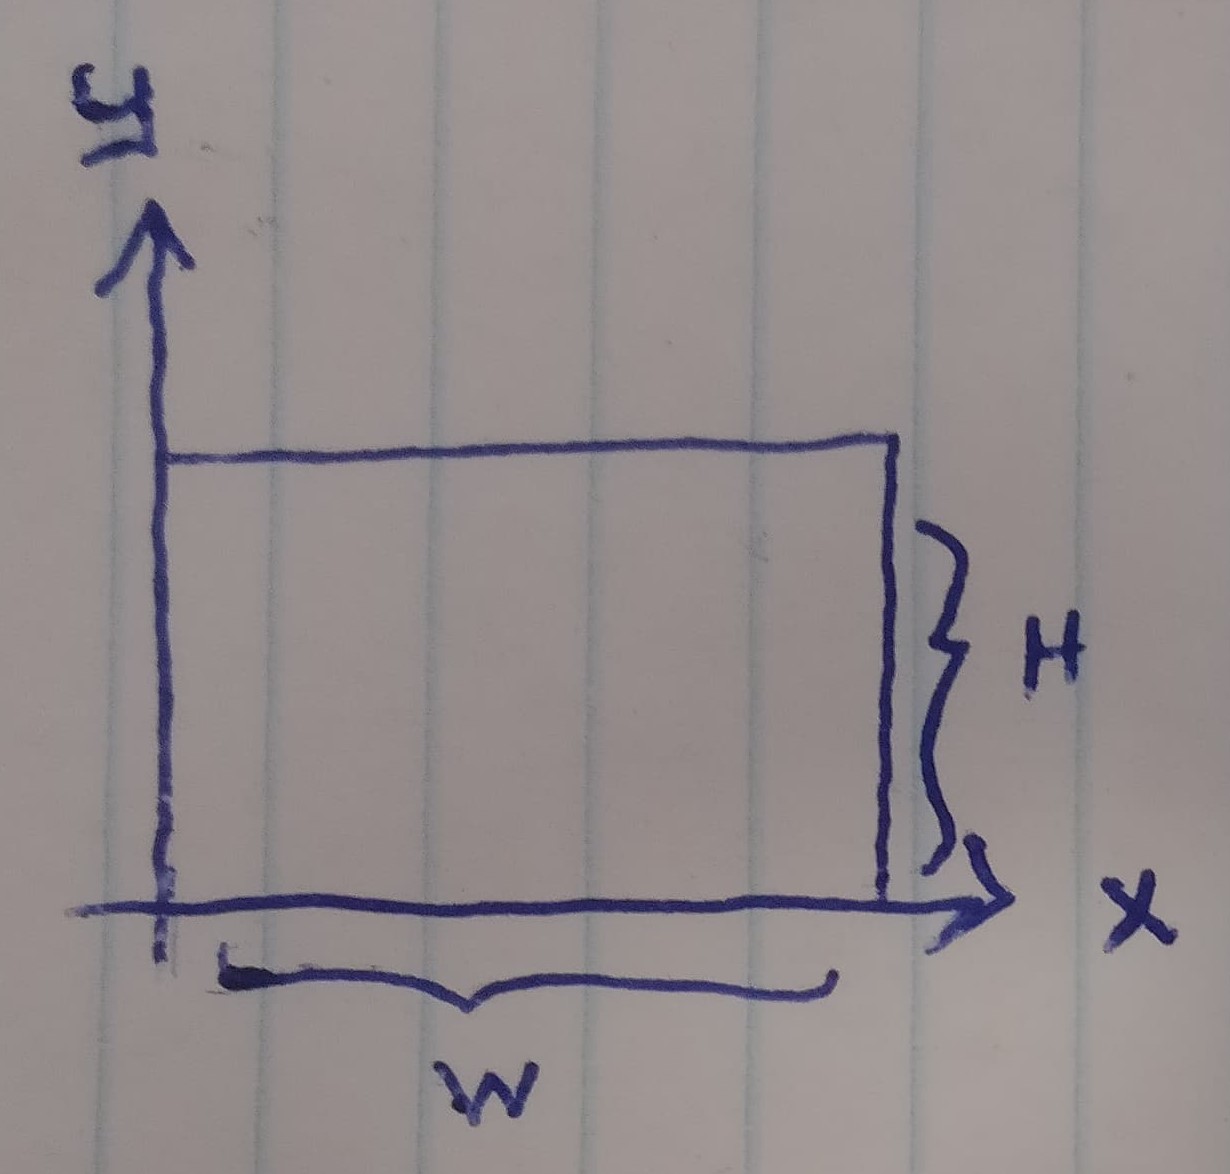 y
H
x
W